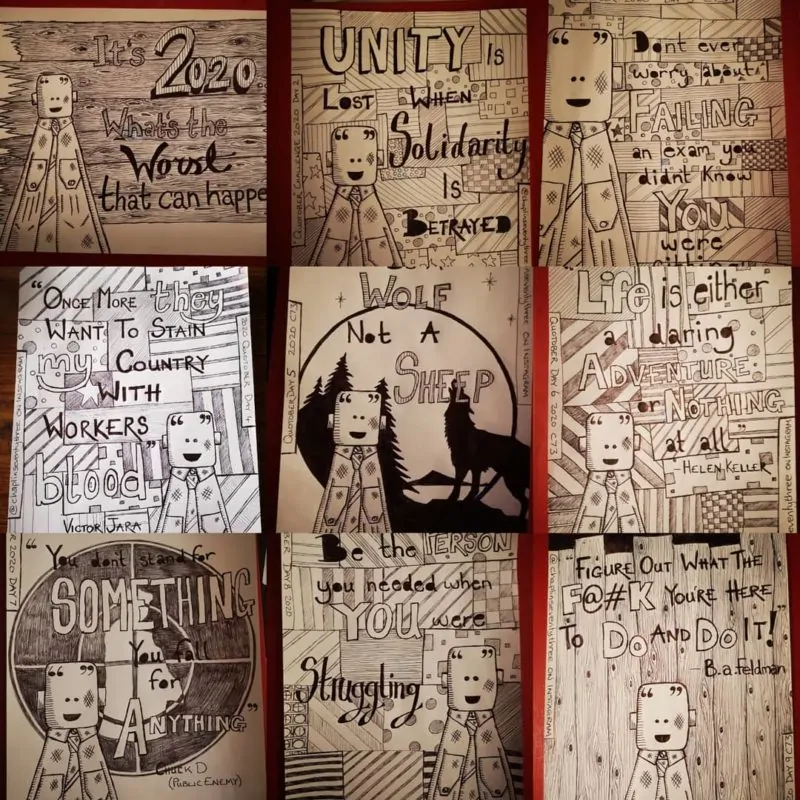 It's 2020.
What's the
Worst
that can happe
UNITY Is
Lost When
Solidarity
Is
Betrayed
QUOTOBER CHALLENGE 2020 DAY 2
@chaplinseventythree ON INSTAGRAM
Dont ever
worry about
FAILING
an exam you
didnt Know
You
were
"ONCE MORE they
WANT TO STAIN
my COUNTRY
WITH
WORKERS
blood"
VICTOR JARA
@chaplinseventythree ON INSTAGRAM
2020 QUOTOBER DAY 4
WOLF
Not A
SHEEP
QUOTOBER DAY 5 2020 C73
seventythree ON INSTAGRAM
Life is either
a daring
ADVENTURE
or NOTHING
at all"
- HELEN KELLER
QUOTOBER DAY 6 2020 C73
seventythree ON INSTAGRAM
"You don't stand for
SOMETHING
You fall
for
ANYTHING"
CHUCK D
(PUBLIC ENEMY)
R 2020 DAY 7
Be the PERSON
you needed when
YOU were
Struggling
BER DAY 8 2020
"FIGURE OUT WHAT THE
F@#K YOU'RE HERE
To Do AND Do IT!"
- B.a.feldman
@chaplinseventythree ON INSTAGRAM
2020 DAY 9 C73